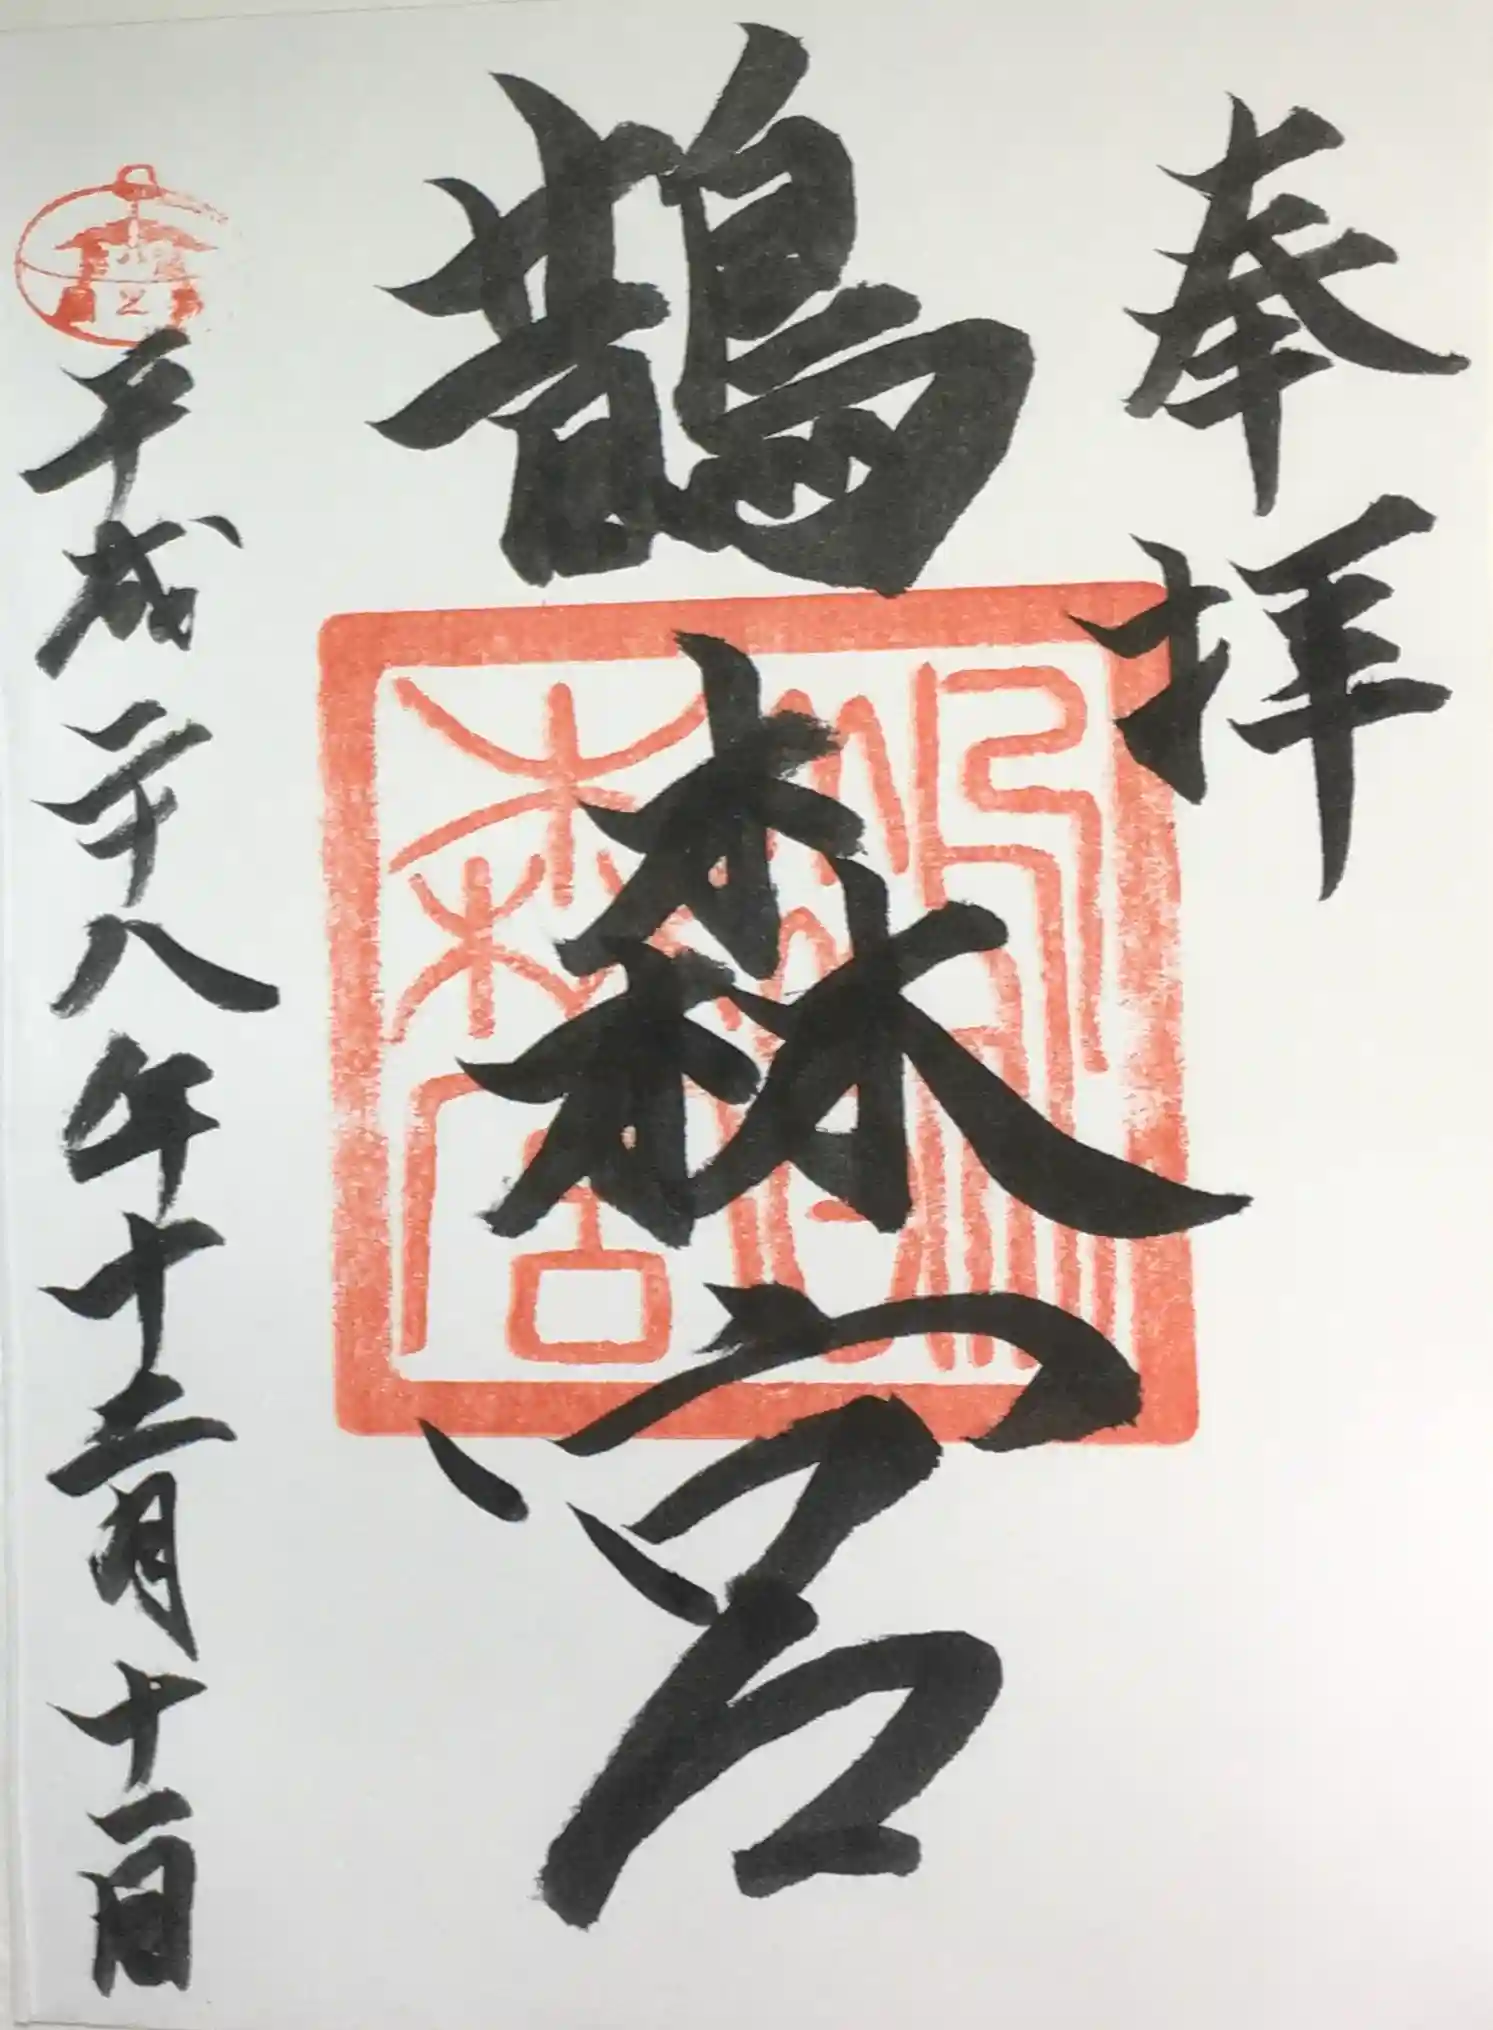 奉拝
鵲森宮
平成二十八年十二月十一日